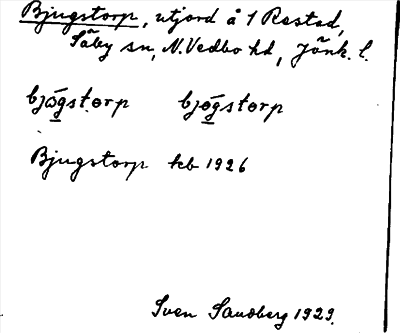 Bjugstorp, utjord å 1 Rastad,
Säby sn, N. Vedbo hd, Jönk. l.
bjǿgstorp bjøgstorp
Bjugstorp kb 1926
Sven Sandberg 1929.